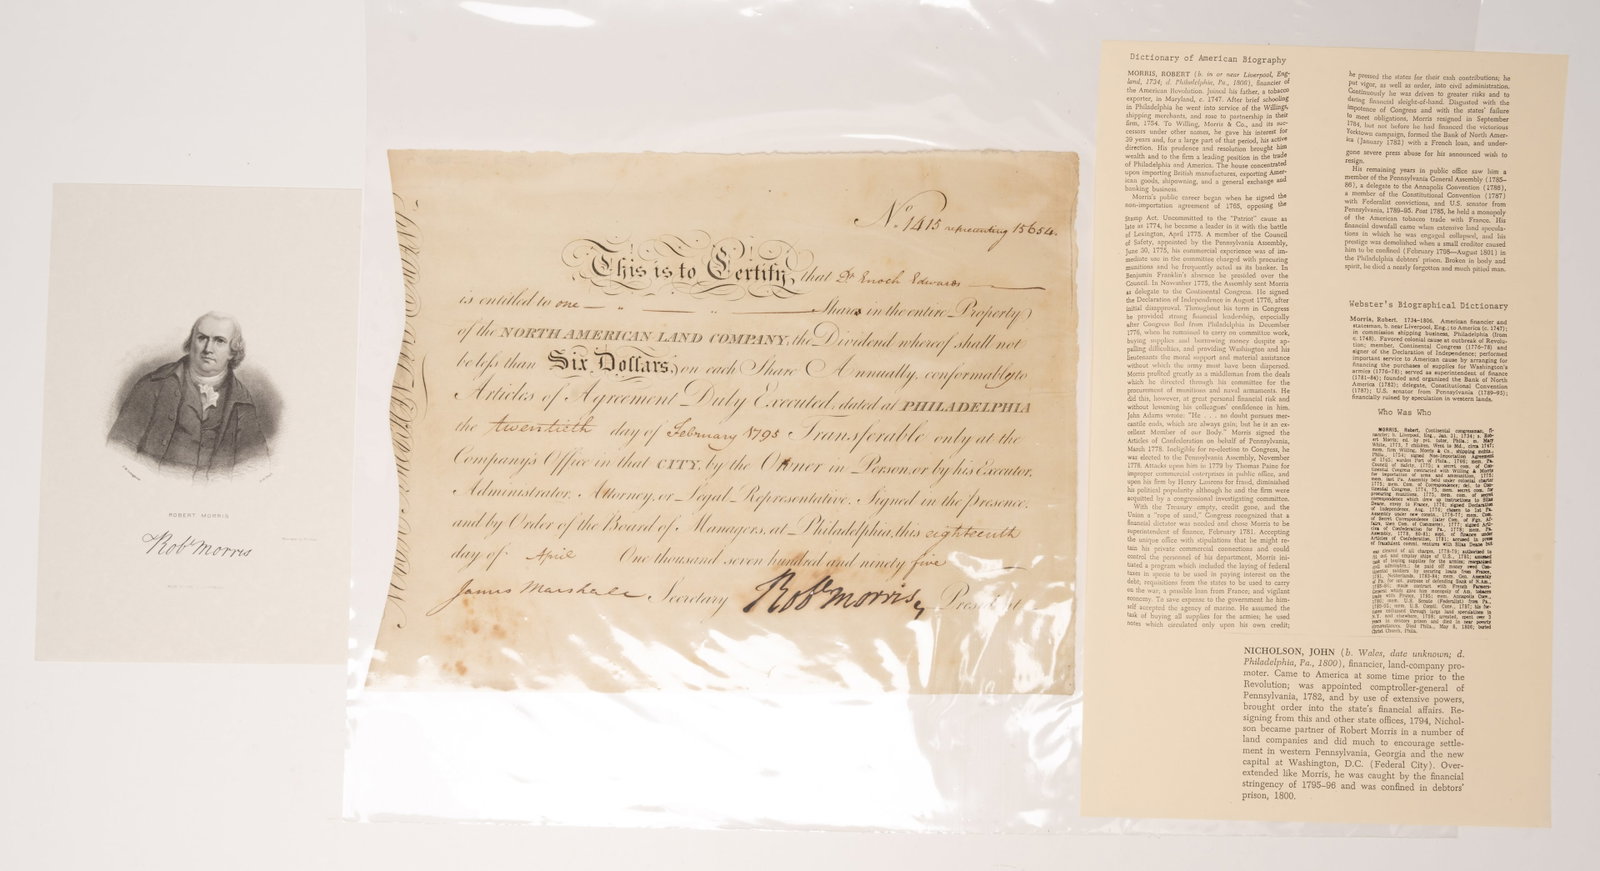 ROBERT MORRIS
Robt Morris
No. 1415 representing 15654.
This is to Certify, that Dr. Enoch Edwards
is entitled to one Share in the entire Property
of the NORTH AMERICAN LAND COMPANY, the Dividend whereof shall not
be less than Six Dollars, on each Share Annually, conformably to
Articles of Agreement Duly Executed, dated at PHILADELPHIA
the twentieth day of February 1795 Transferable only at the
Company's Office in that CITY, by the Owner in Person, or by his Executor,
Administrator, Attorney, or Legal Representative. Signed in the presence,
and by Order of the Board of Managers, at Philadelphia, this eighteenth
day of April One thousand seven hundred and ninety five
James Marshall Secretary Robt Morris President
Dictionary of American Biography
MORRIS, ROBERT (b. in or near Liverpool, Eng-
land, 1734; d. Philadelphia, Pa., 1806), financier of
the American Revolution. Joined his father, a tobacco
exporter, in Maryland, c. 1747. After brief schooling
in Philadelphia he went into service of the Willings,
shipping merchants, and rose to partnership in their
firm, 1754. To Willing, Morris & Co., and its suc-
cessors under other names, he gave his interest for
39 years and, for a large part of that period, his active
direction. His prudence and resolution brought him
wealth and to the firm a leading position in the trade
of Philadelphia and America. The house concentrated
upon importing British manufactures, exporting Amer-
ican goods, shipowning, and a general exchange and
banking business.
Morris's public career began when he signed the
non-importation agreement of 1765, opposing the
Stamp Act. Uncommitted to the "Patriot" cause as
late as 1774, he became a leader in it with the battle
of Lexington, April 1775. A member of the Council
of Safety, appointed by the Pennsylvania Assembly,
June 30, 1775, his commercial experience was of im-
mediate use in the committee charged with procuring
munitions and he frequently acted as its banker. In
Benjamin Franklin's absence he presided over the
Council. In November 1775, the Assembly sent Morris
as delegate to the Continental Congress. He signed
the Declaration of Independence in August 1776, after
initial disapproval. Throughout his term in Congress
he provided strong financial leadership, especially
after Congress fled from Philadelphia in December
1776, when he remained to carry on committee work,
buying supplies and borrowing money despite ap-
palling difficulties, and providing Washington and his
lieutenants the moral support and material assistance
without which the army must have been dispersed.
Morris profited greatly as a middleman from the deals
which he directed through his committee for the
procurement of munitions and naval armaments. He
did this, however, at great personal financial risk and
without lessening his colleagues' confidence in him.
John Adams wrote: "He . . . no doubt pursues mer-
cantile ends, which are always gain; but he is an ex-
cellent Member of our Body." Morris signed the
Articles of Confederation on behalf of Pennsylvania,
March 1778. Ineligible for re-election to Congress, he
was elected to the Pennsylvania Assembly, November
1778. Attacks upon him in 1779 by Thomas Paine for
improper commercial enterprises in public office, and
upon his firm by Henry Laurens for fraud, diminished
his political popularity although he and the firm were
acquitted by a congressional investigating committee.
With the Treasury empty, credit gone, and the
Union a "rope of sand," Congress recognized that a
financial dictator was needed and chose Morris to be
superintendent of finance, February 1781. Accepting
the unique office with stipulations that he might re-
tain his private commercial connections and could
control the personnel of his department, Morris ini-
tiated a program which included the laying of federal
taxes in specie to be used in paying interest on the
debt; requisitions from the states to be used to carry
on the war; a possible loan from France; and vigilant
economy. To save expense to the government he him-
self accepted the agency of marine. He assumed the
task of buying all supplies for the armies; he used
notes which circulated only upon his own credit;
he pressed the states for their cash contributions; he
put vigor, as well as order, into civil administration.
Continuously he was driven to greater risks and to
daring financial sleight-of-hand. Disgusted with the
impotence of Congress and with the states' failure
to meet obligations, Morris resigned in September
1784, but not before he had financed the victorious
Yorktown campaign, formed the Bank of North Amer-
ica (January 1782) with a French loan, and under-
gone severe press abuse for his announced wish to
resign.
His remaining years in public office saw him a
member of the Pennsylvania General Assembly (1785-
86), a delegate to the Annapolis Convention (1786),
a member of the Constitutional Convention (1787)
with Federalist convictions, and U.S. senator from
Pennsylvania, 1789-95. Post 1785, he held a monopoly
of the American tobacco trade with France. His
financial downfall came when extensive land specula-
tions in which he was engaged collapsed, and his
prestige was demolished when a small creditor caused
him to be confined (February 1798—August 1801) in
the Philadelphia debtors' prison. Broken in body and
spirit, he died a nearly forgotten and much pitied man.
Webster's Biographical Dictionary
Morris, Robert. 1734-1806. American financier and
statesman, b. near Liverpool, Eng.; to America (c. 1747);
in commission shipping business, Philadelphia (from
c. 1748). Favored colonial cause at outbreak of Revolu-
tion; member, Continental Congress (1776-78) and
signer of the Declaration of Independence; performed
important service to American cause by arranging for
financing the purchases of supplies for Washington's
armies (1776-78); served as superintendent of finance
(1781-84); founded and organized the Bank of North
America (1782); delegate, Constitutional Convention
(1787); U.S. senator from Pennsylvania (1789-95);
financially ruined by speculation in western lands.
Who Was Who
MORRIS, Robert, Continental congressman,
NICHOLSON, JOHN (b. Wales, date unknown; d.
Philadelphia, Pa., 1800), financier, land-company pro-
moter. Came to America at some time prior to the
Revolution; was appointed comptroller-general of
Pennsylvania, 1782, and by use of extensive powers,
brought order into the state's financial affairs. Re-
signing from this and other state offices, 1794, Nichol-
son became partner of Robert Morris in a number of
land companies and did much to encourage settle-
ment in western Pennsylvania, Georgia and the new
capital at Washington, D.C. (Federal City). Over-
extended like Morris, he was caught by the financial
stringency of 1795-96 and was confined in debtors'
prison, 1800.